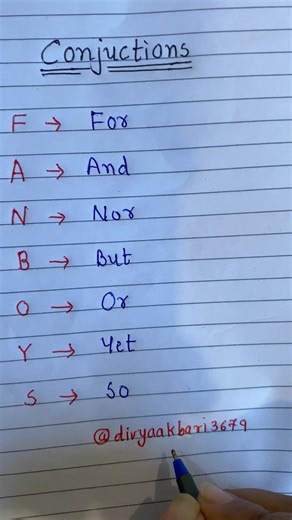 Conjuctions
F → For
A → And
N → Nor
B → But
O → Or
Y → Yet
S → So
@divyaakbari3679